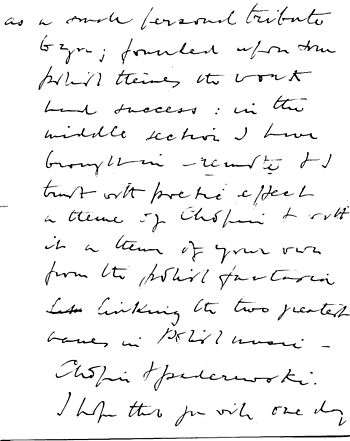 as a small personal tribute
to you; founded upon some
Polish themes the work
had success: in the
middle section I have
brought in – remote & I
trust with poetic effect
a theme of Chopin & with
it a theme of your own
from the polish fantasia
linking the two greatest
names in Polish music –
Chopin & Paderewski.
I hope that you will one day